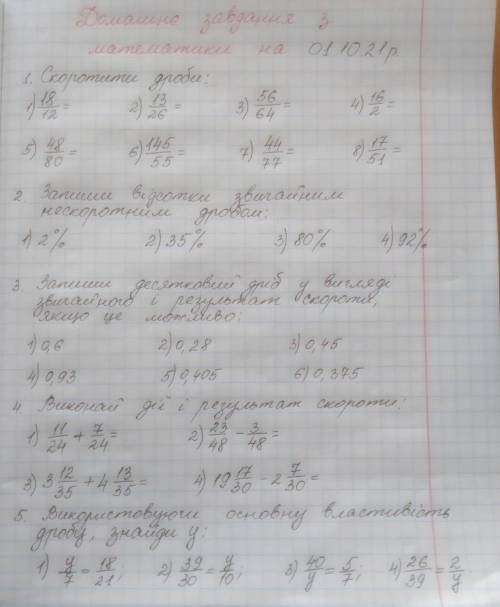 Домашнє завдання з
математики на 01.10.21 р.
1. Скоротити дроби:
1) 18/12 = 2) 13/26 = 3) 56/64 = 4) 16/2 =
5) 48/80 = 6) 145/55 = 7) 44/77 = 8) 17/51 =
2. Запиши відсотки звичайним
нескоротним дробом:
1) 2% 2) 35% 3) 80% 4) 92%
3. Запиши десятковий дріб у вигляді
звичайного і результат скороти,
якщо це можливо:
1) 0,6 2) 0,28 3) 0,45
4) 0,93 5) 0,405 6) 0,375
4. Виконай дії і результат скороти:
1) 11/24 + 7/24 = 2) 23/48 - 3/48 =
3) 3 12/35 + 4 13/35 = 4) 19 17/30 - 2 7/30 =
5. Використовуючи основну властивість
дробу, знайди y:
1) y/7 = 18/21; 2) 39/30 = y/10; 3) 40/y = 5/7; 4) 26/39 = 2/y